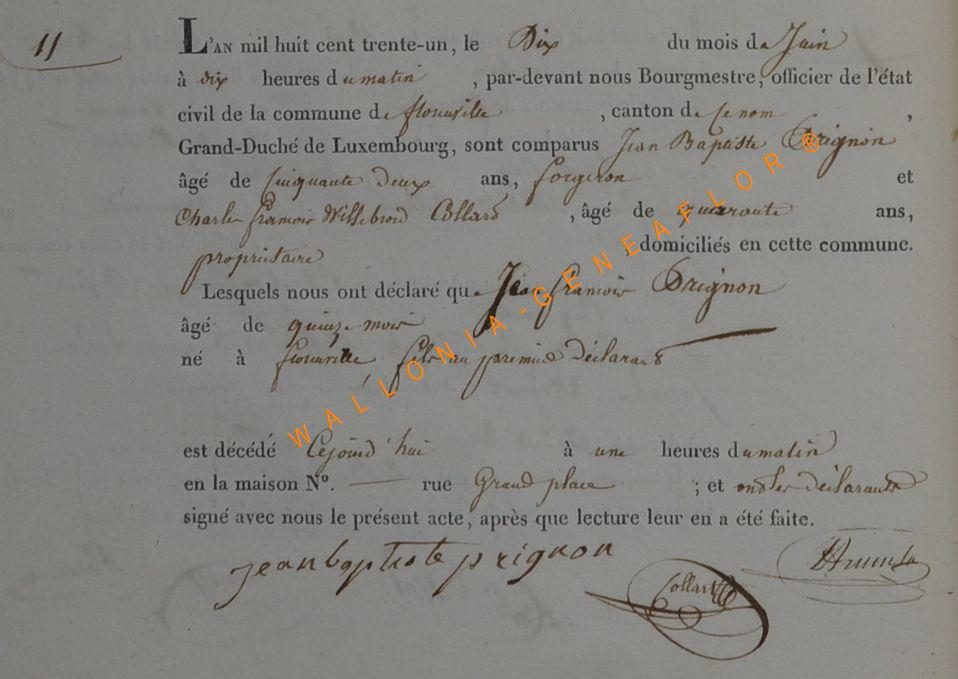 11
L'AN mil huit cent trente-un, le Dix du mois de Juin
à dix heures du matin , par-devant nous Bourgmestre, officier de l'état
civil de la commune de florenville , canton de ce nom ,
Grand-Duché de Luxembourg, sont comparus Jean Baptiste Prignon
âgé de Cinquante deux ans, forgeron et
Charles francois Willebrord Collard , âgé de quarante ans,
propriétaire , domiciliés en cette commune.
Lesquels nous ont déclaré que Jean francois Prignon
âgé de quinze mois
né à florenville, fils au premier déclarant
est décédé Cejourd'hui à une heures du matin
en la maison N°. — rue Grand place ; et ont les déclarants
signé avec nous le présent acte, après que lecture leur en a été faite.
jean baptiste prignon
Collard
WALLONIA-GENEAFLOR®